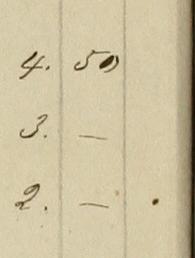 4. 50
3. —
2. —